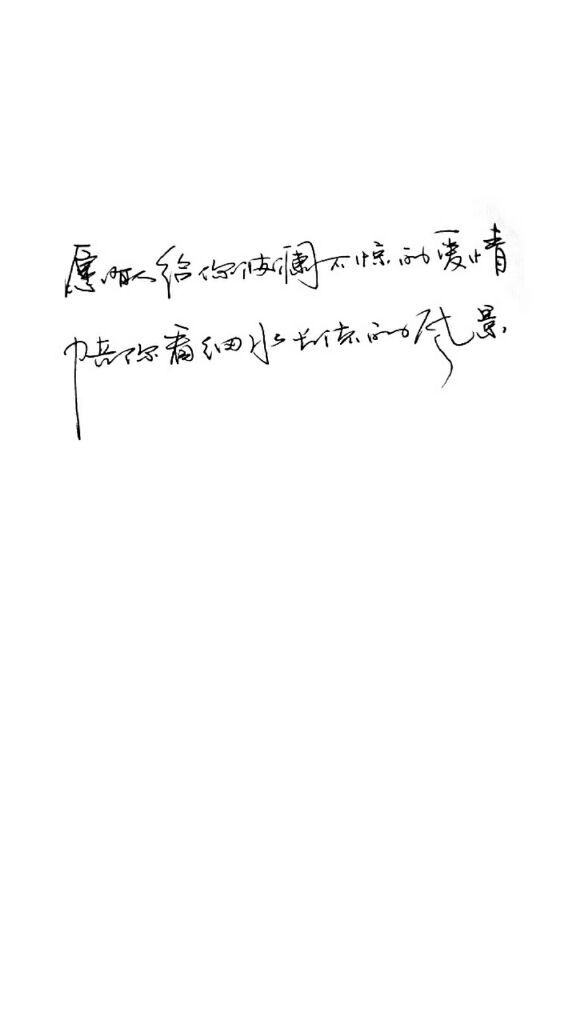 愿有人给你波澜不惊的爱情
陪你看细水长流的风景